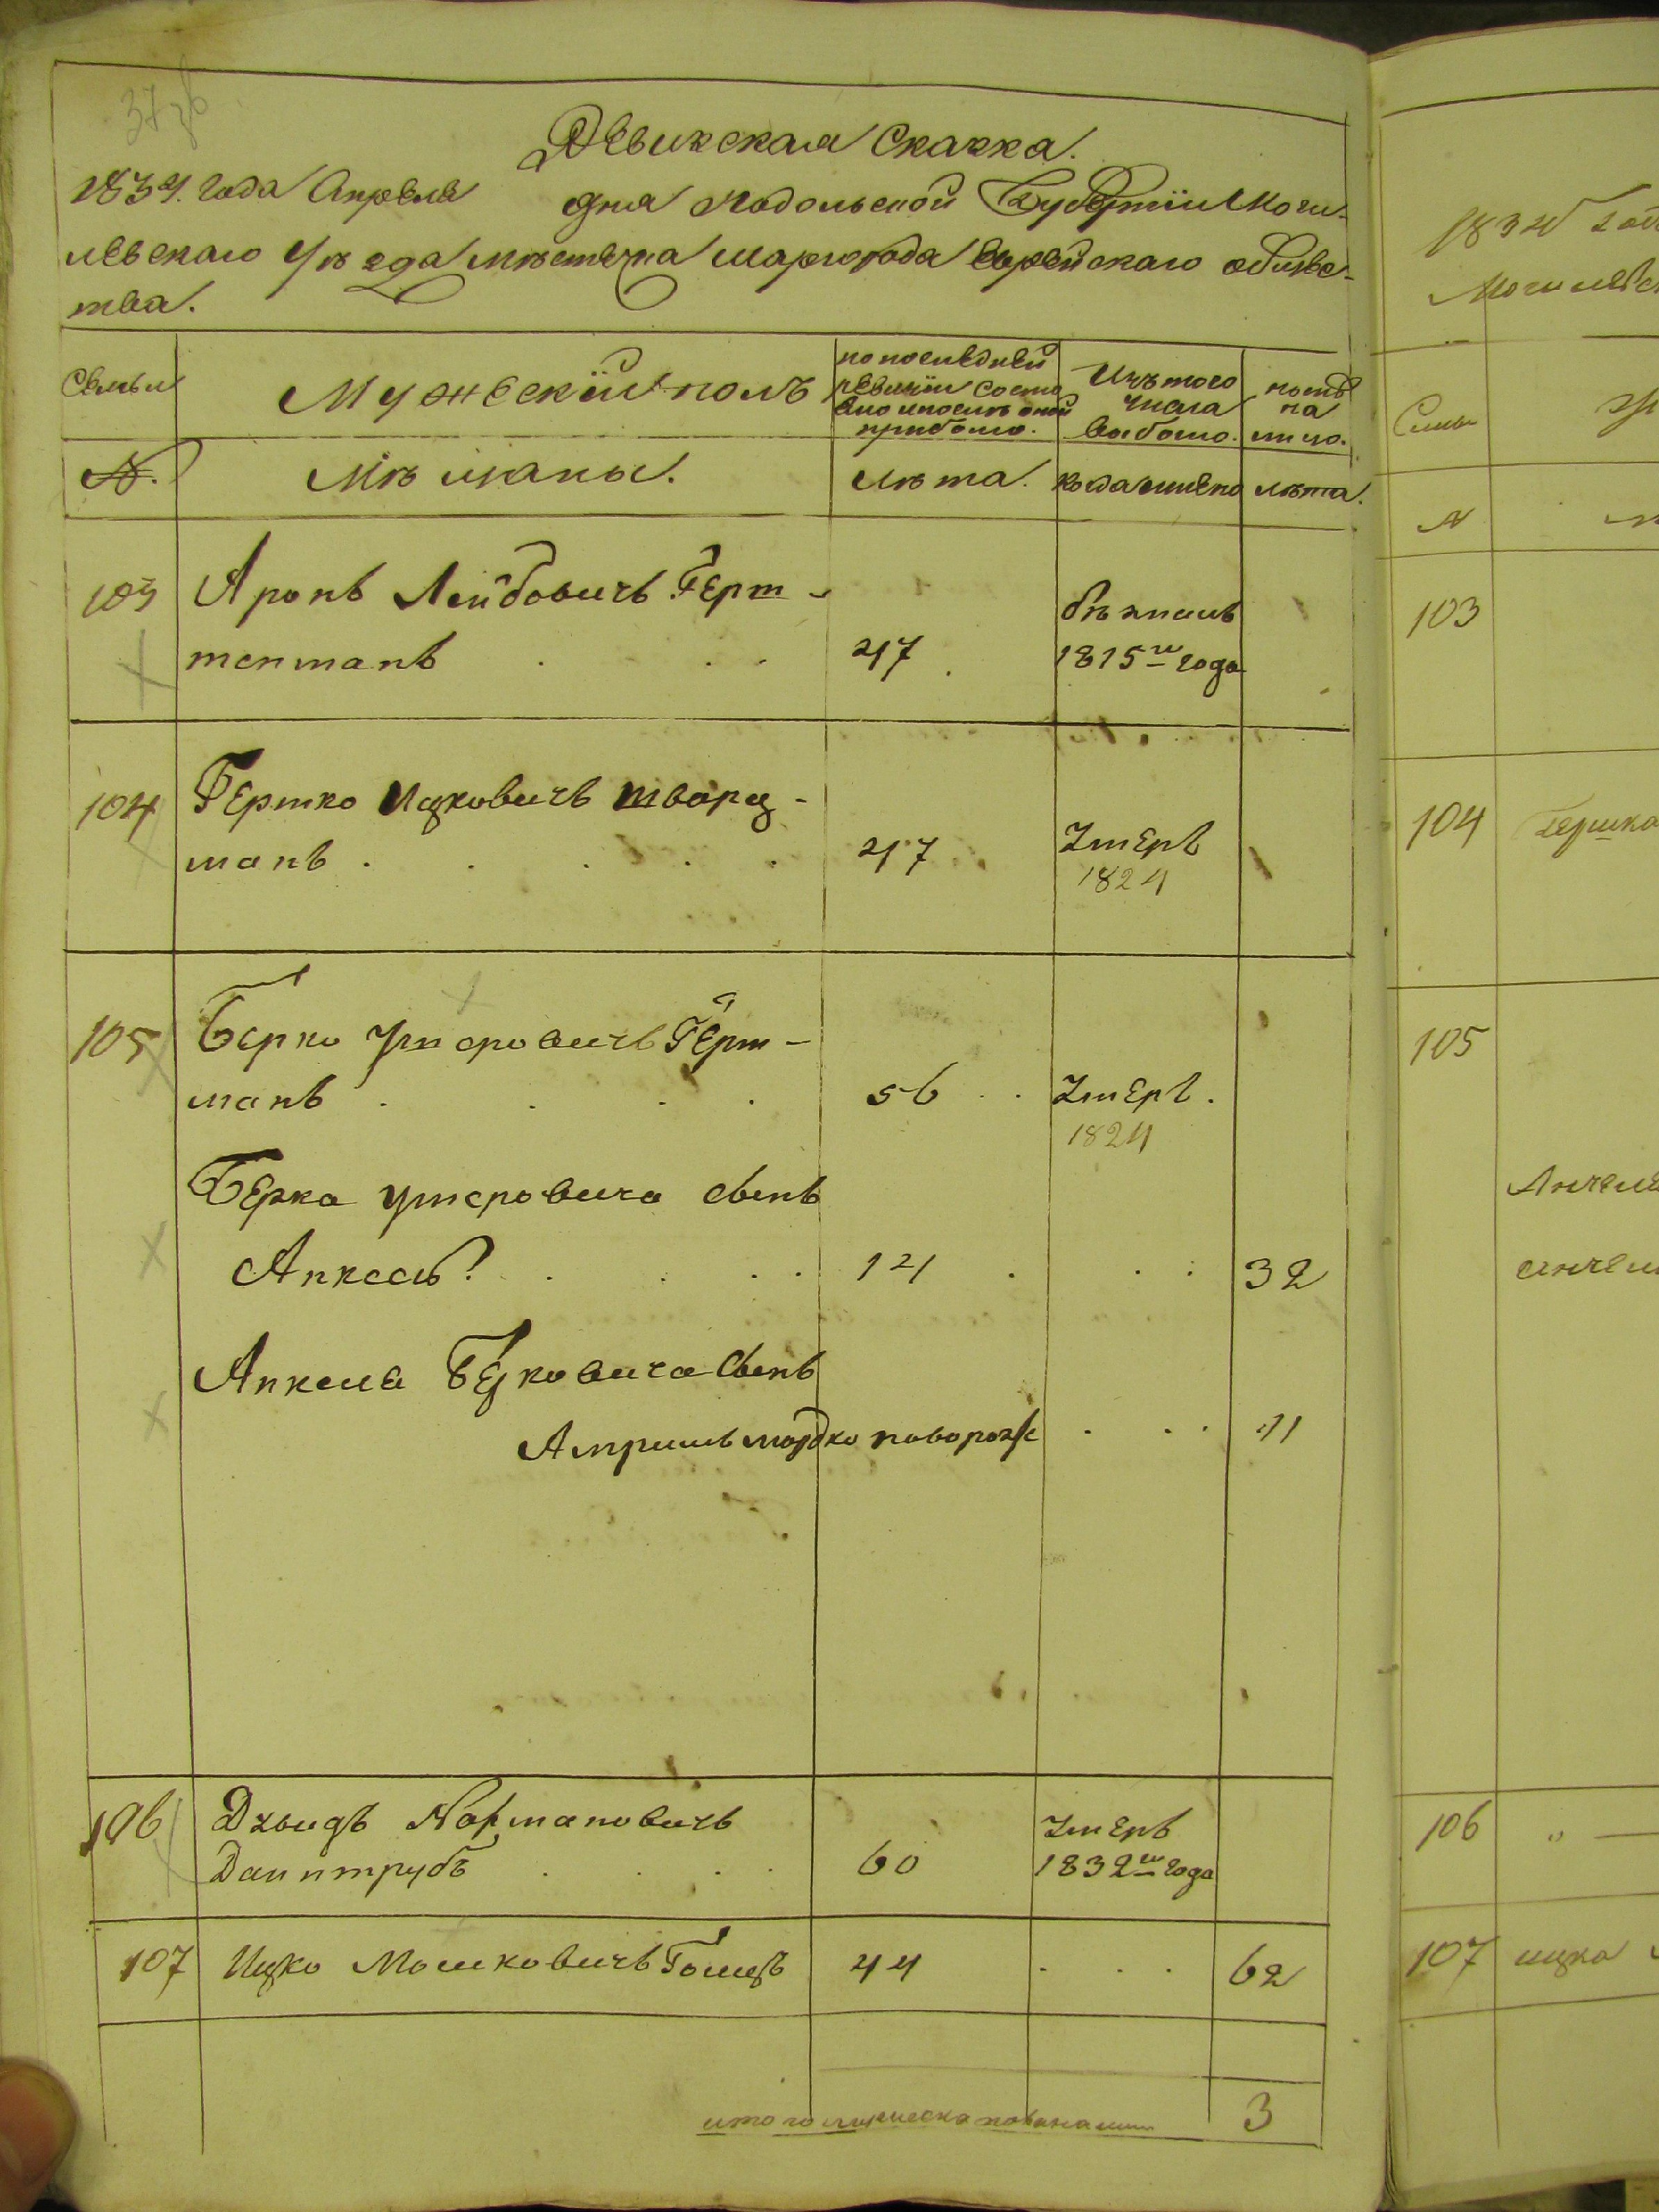 Ревижская Сказка.
1834. года Апреля дня Подольской Губернïи Моги-
левскаго Уѣзда мѣстечка Шаргорода Еврейскаго общес-
тва.
Семьи
Мужескïй полъ
по последней ревизïи состо яло и после оной прибыло.
Изъ того числа выбыло.
ныне на лицо.
№.
Мѣщаны.
Лѣта.
когда именно
лѣта.
103 Аронъ Лейбовичъ Герш-
тенманъ 47 бѣжалъ
1815го года
104 Гершко Ицковичъ Шварц-
манъ 47 Умеръ
1824
105 Берко Умеровичъ Герш-
манъ 56 Умеръ.
1824
Берка Умеровича сынъ
Анкель 14 32
Анкеля Берковича сынъ
Мордко новорож 11
106 Нормановичъ Умеръ
60 1832го года
107 Ицко Мошковичъ 44 62
итого мужеска пола налицо 3
1834 года
Могилевс
Семьи
№
103
104 Гершка
105
Анчеля
Анчел
106 "
107 ицка